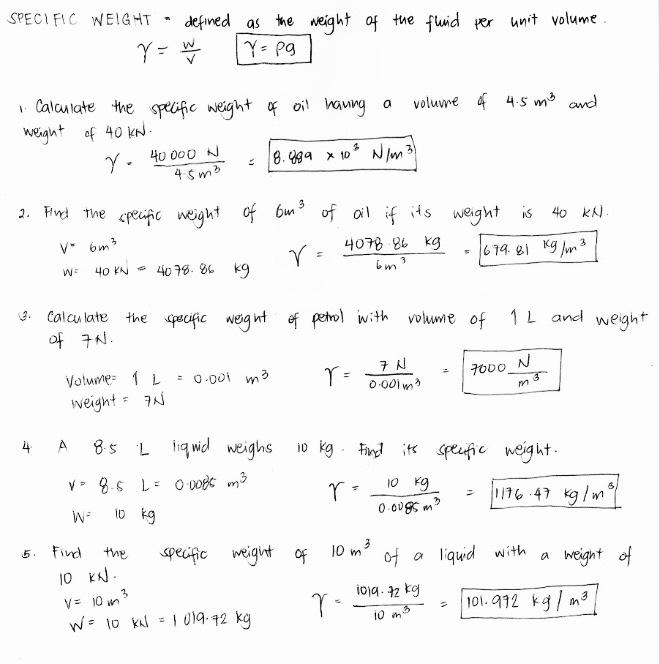 SPECIFIC WEIGHT - defined as the weight of the fluid per unit volume.
γ = W/V   γ = ρg
1. Calculate the specific weight of oil having a volume of 4.5 m³ and
weight of 40 kN.
γ = 40 000 N / 4.5 m³ = 8.889 x 10³ N/m³
2. Find the specific weight of 6m³ of oil if its weight is 40 kN.
V = 6m³
W = 40 kN = 4078.86 kg
γ = 4078.86 kg / 6m³ = 679.81 kg/m³
3. Calculate the specific weight of petrol with volume of 1 L and weight
of 7N.
Volume = 1 L = 0.001 m³
Weight = 7N
γ = 7 N / 0.001m³ = 7000 N/m³
4 A 8.5 L liquid weighs 10 kg. Find its specific weight.
V = 8.5 L = 0.0085 m³
W = 10 kg
γ = 10 kg / 0.0085 m³ = 1176.47 kg/m³
5. Find the specific weight of 10 m³ of a liquid with a weight of
10 kN.
V = 10 m³
W = 10 kN = 1019.72 kg
γ = 1019.72 kg / 10 m³ = 101.972 kg/m³